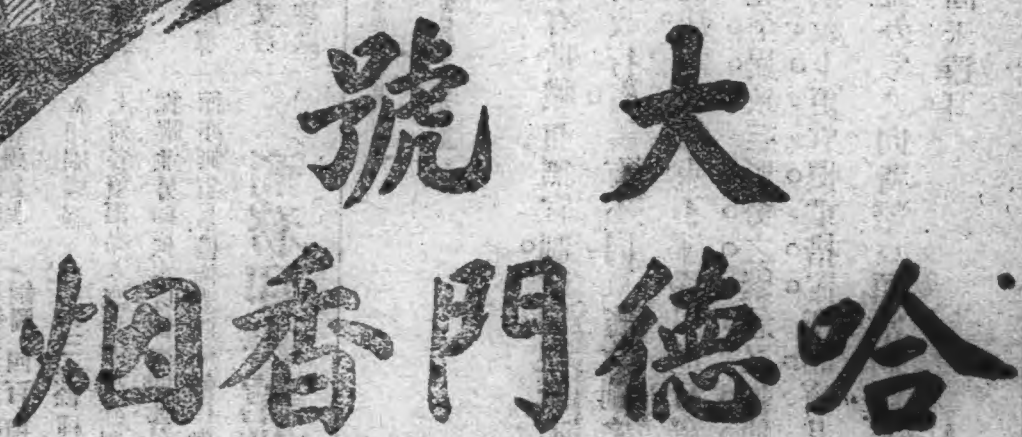 大號
哈德門香烟